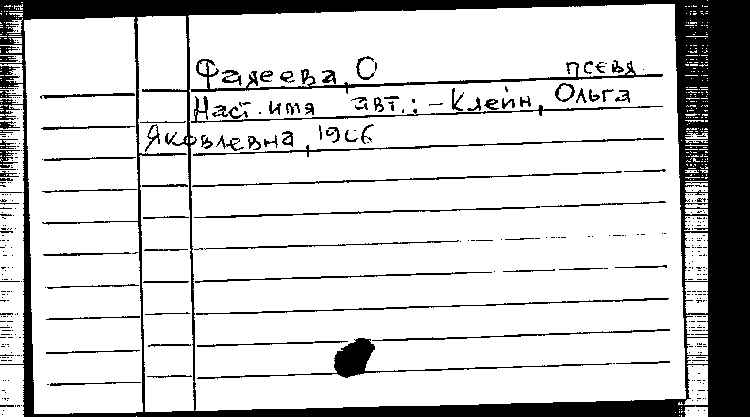 Фадеева, О псевд.
Наст. имя авт.: - Клейн, Ольга
Яковлевна, 1906